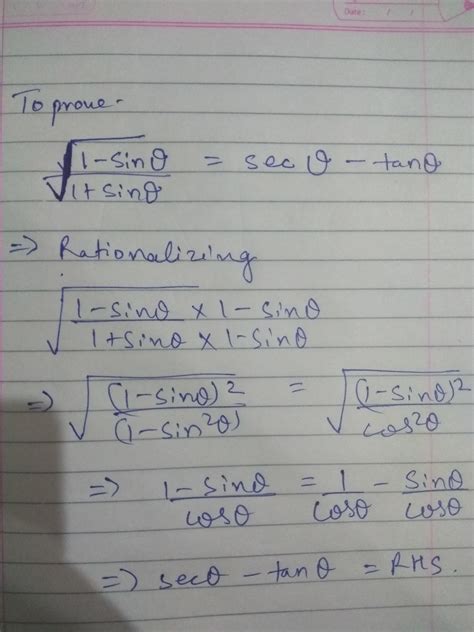 Date: / /
To prove -
√(1-sinθ) / √(1+sinθ) = secθ - tanθ
=> Rationalizing
√((1-sinθ × 1-sinθ) / (1+sinθ × 1-sinθ))
=> √((1-sinθ)² / (1-sin²θ)) = √((1-sinθ)² / cos²θ)
=> (1-sinθ) / cosθ = 1/cosθ - sinθ/cosθ
=> secθ - tanθ = RHS.